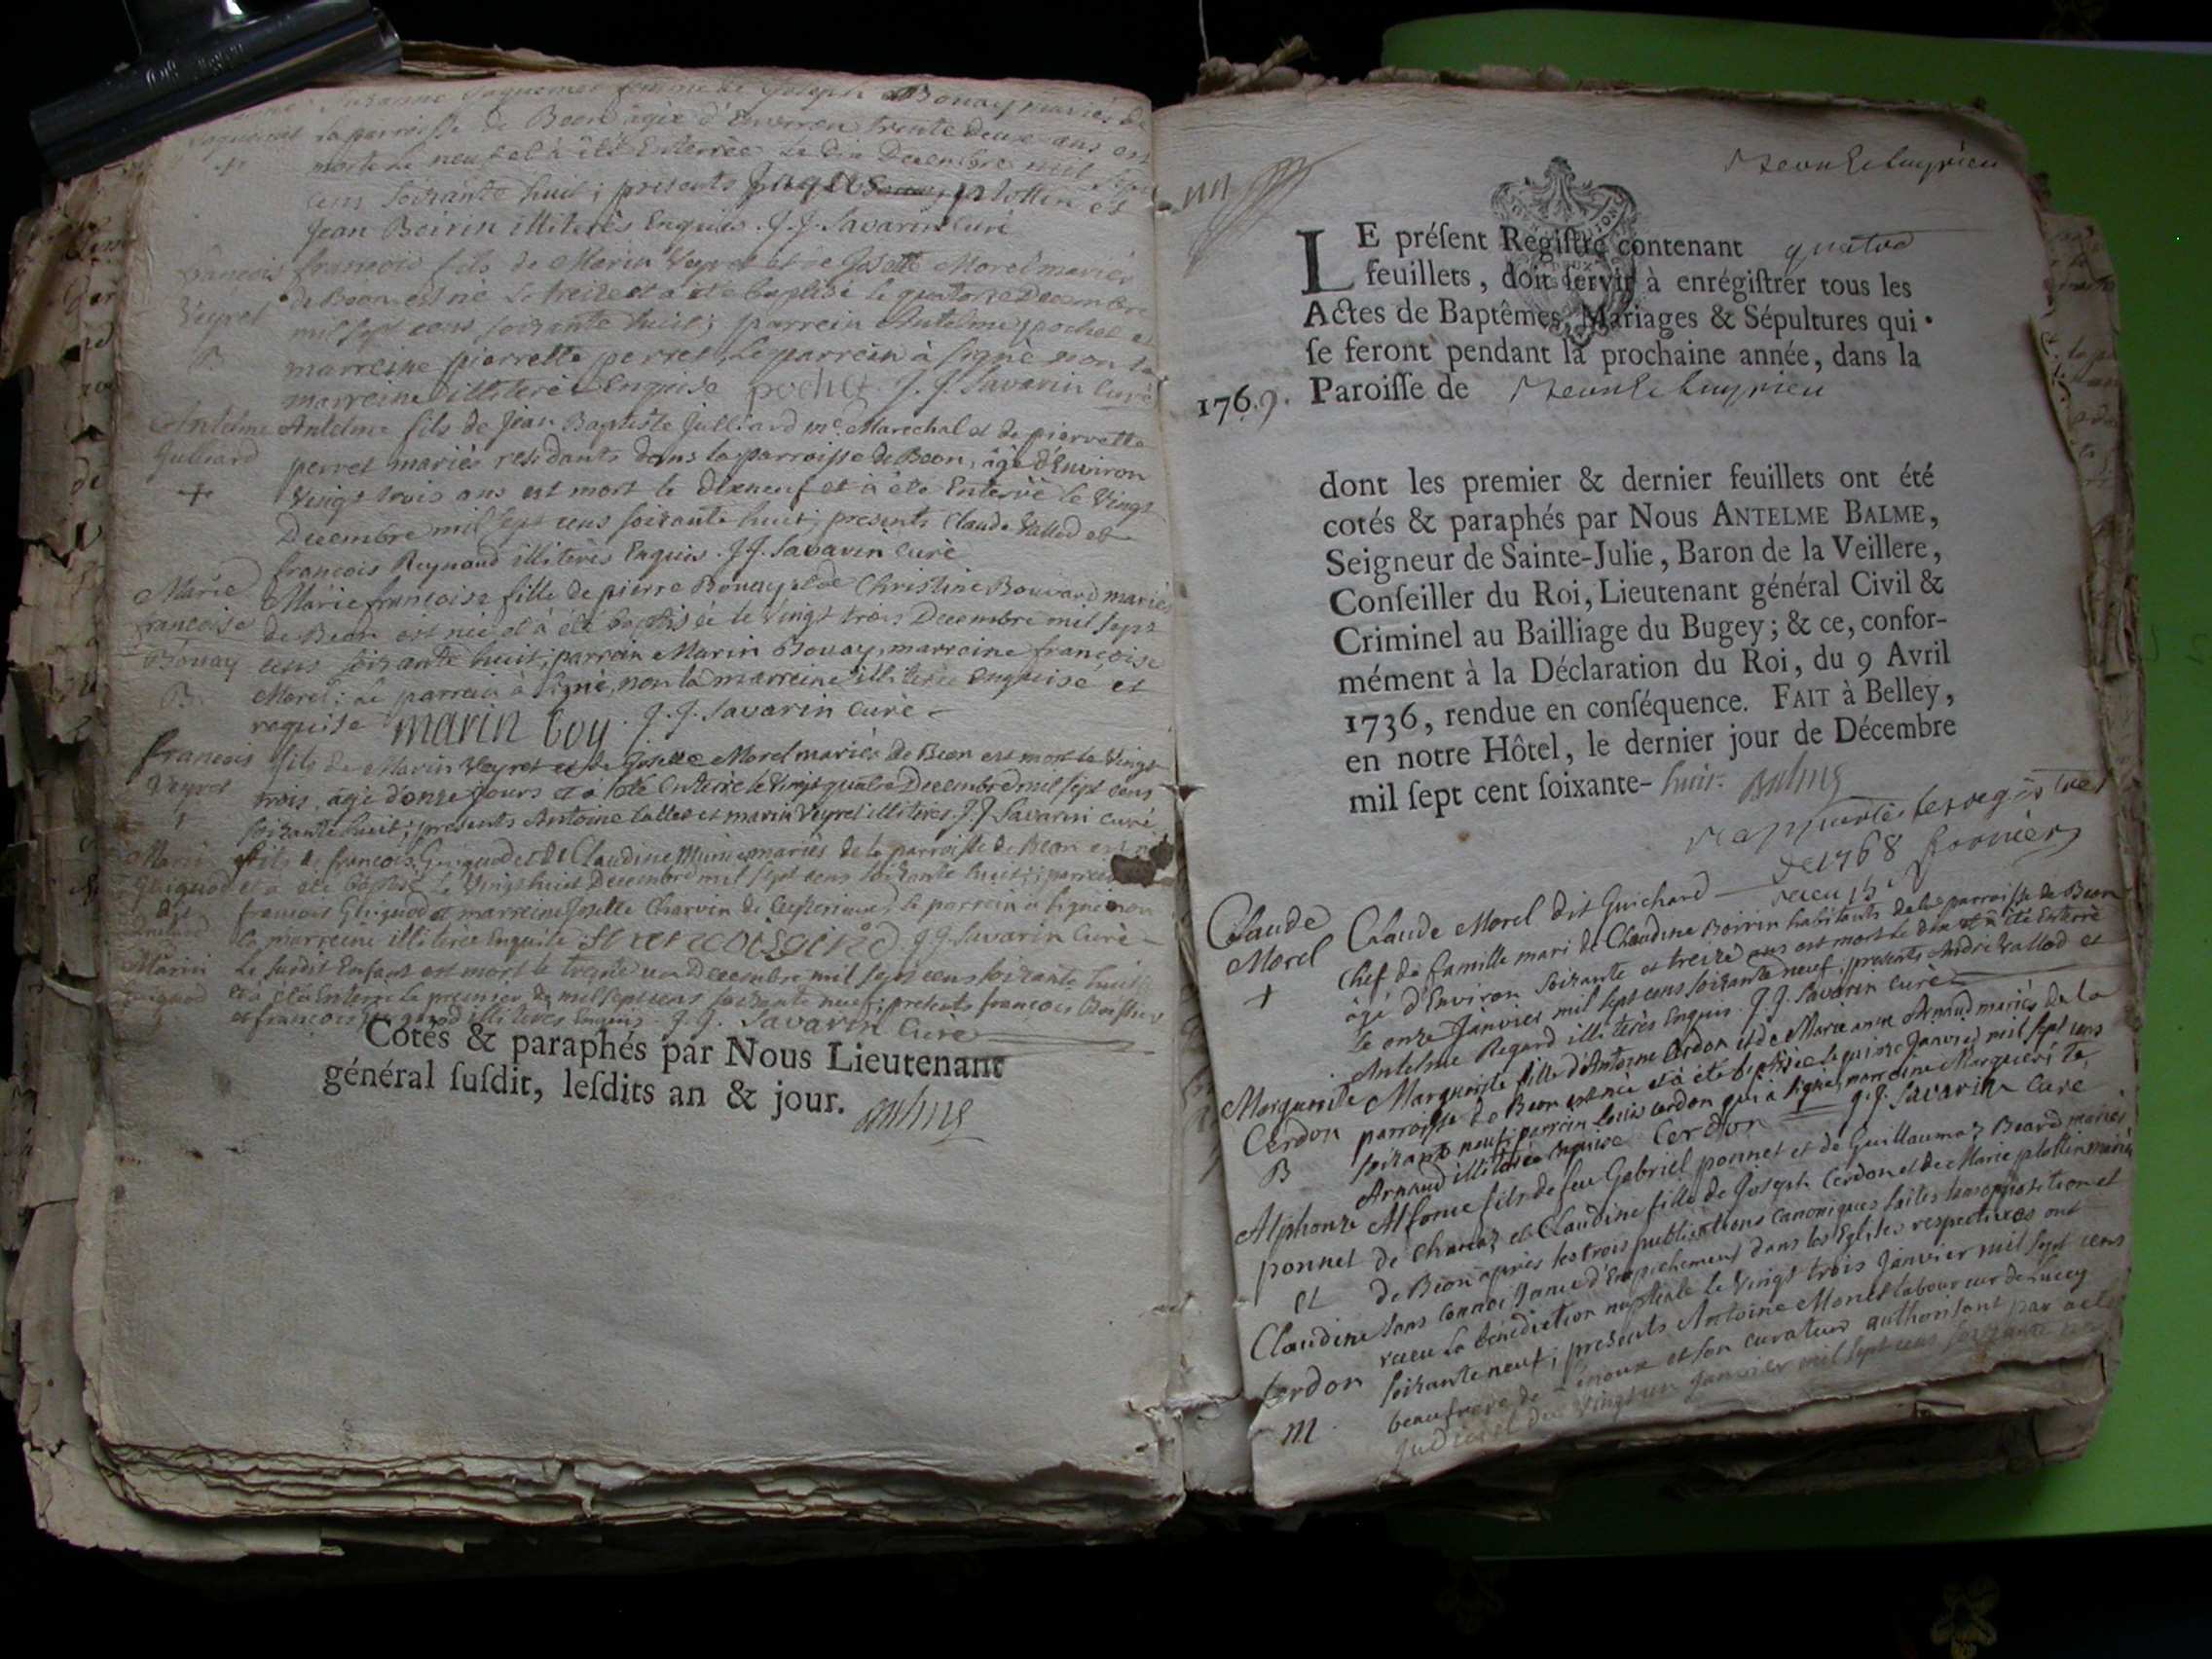 Suzanne Jaquemet femme de Joseph Bouay mariés de
Jaquemet la parroisse de Beon âgée d'Environ trente deux ans est
+ morte le neuf et à été Enterrée Le dix Decembre mil sept
cens soixante huit; presents plottin et
Jean Boirin illiterès Enquis. J. J. Savarin Curé
francois francois fils de Marin Veyret et de Josette Morel mariés
Veyret de Beon est né le treize et a été baptisé le quatorze Decembre
mil sept cens soixante huit; parrein Antelme pochet et
B marreine pierrette perret, le parrein à signé non la
marreine illiterée Enquise pochet J. J. Savarin Curé
Antelme Antelme fils de Jean Baptiste Julliard me. Marechal et de pierrette
Julliard perret mariés residants dans la parroisse de Beon, âgé d'Environ
+ Vingt trois ans est mort le dixneuf et à été Enterré le Vingt
Decembre mil sept cens soixante huit; presents Claude Vallod et
francois Reynaud illiterès Enquis. J. J. Savarin Curé
Marie Marie francoise fille de pierre Bouay et de Christine Bouvard mariés
francoise de Beon est née et à été baptisée le Vingt trois Decembre mil sept
Bouay cens soixante huit; parrein Marin Bouay, marreine françoise
B. Morel; Le parrein à signé, non la marreine illiterée enquise et
requise marin boy. J. J. Savarin Curé
francois fils de Marin Veyret et de Josette Morel mariés de Beon est mort le Vingt
Veyret trois, âgé d'onze jours et a été Enterré le Vingt quatre Decembre mil sept cens
+ soixante huit; presents Antoine Vallet et marin Veyret illiterés. J. J. Savarin Curé
Marin fils de francois Guiguod et de Claudine Munier mariés de la parroisse de Beon est né
Guiguod et à été baptisé le Vingt huit Decembre mil sept cens soixante huit; parrein
francois Guiguod et marreine Josette Charvin de le parrein à signé non
la marreine illiterée Enquise J. J. Savarin Curé
Marin Le susdit Enfant est mort le trente un Decembre mil sept cens soixante huit
Guiguod et à été Enterré le premier de mil sept cens soixante neuf; presents francois
et francois illiterés Enquis. J. J. Savarin Curé
Cotés & paraphés par Nous Lieutenant
général ſuſdit, leſdits an & jour. Balme
LE préſent Regiſtre contenant quatre
feuillets, doit ſervir à enrégiſtrer tous les
Actes de Baptêmes, Mariages & Sépultures qui
ſe feront pendant la prochaine année, dans la
1769. Paroiſſe de
dont les premier & dernier feuillets ont été
cotés & paraphés par Nous ANTELME BALME,
Seigneur de Sainte-Julie, Baron de la Veillere,
Conſeiller du Roi, Lieutenant général Civil &
Criminel au Bailliage du Bugey; & ce, confor-
mément à la Déclaration du Roi, du 9 Avril
1736, rendue en conſéquence. FAIT à Belley,
en notre Hôtel, le dernier jour de Décembre
mil ſept cent ſoixante-huit. Balme
rapportés les registres
de 1768
receu 15s
Claude Claude Morel dit Guichard
Morel Chef de famille mari de Claudine Boirin habitants de la parroisse de Beon
+ âgé d'Environ soixante et treize ans est mort le dix et à été Enterré
Le onze Janvier mil sept cens soixante neuf; presents André Vallod et
Antelme Regard illiterès Enquis. J. J. Savarin Curé
Marguerite Marguerite fille d'Antoine Cerdon et de Marie anne Arnaud mariés de la
Cerdon parroisse de Beon est née et à été baptisée le quinze Janvier mil sept cens
B soixante neuf; parrein Louis cerdon qui à signé, marreine Marguerite
Arnaud illiterée enquise Cerdon J. J. Savarin Curé
Alphonse Alfonse fils de feu Gabriel ponnet et de Guillaumaz Beard mariés
ponnet de Chanaz et Claudine fille de Joseph Cerdon et de Marie plottin mariés
et de Beon après les trois publications Canoniques faites sans opposition et
Claudine sans connoissance d'Empechement dans les Eglises respectives ont
receu la bénédiction nuptiale le Vingt trois Janvier mil sept cens
Cerdon soixante neuf; presents Antoine Monet laboureur de Lucey
m. beaufrere de l'époux et son curateur authorisant par acte
judiciel du Vingt un Janvier mil sept cens soixante